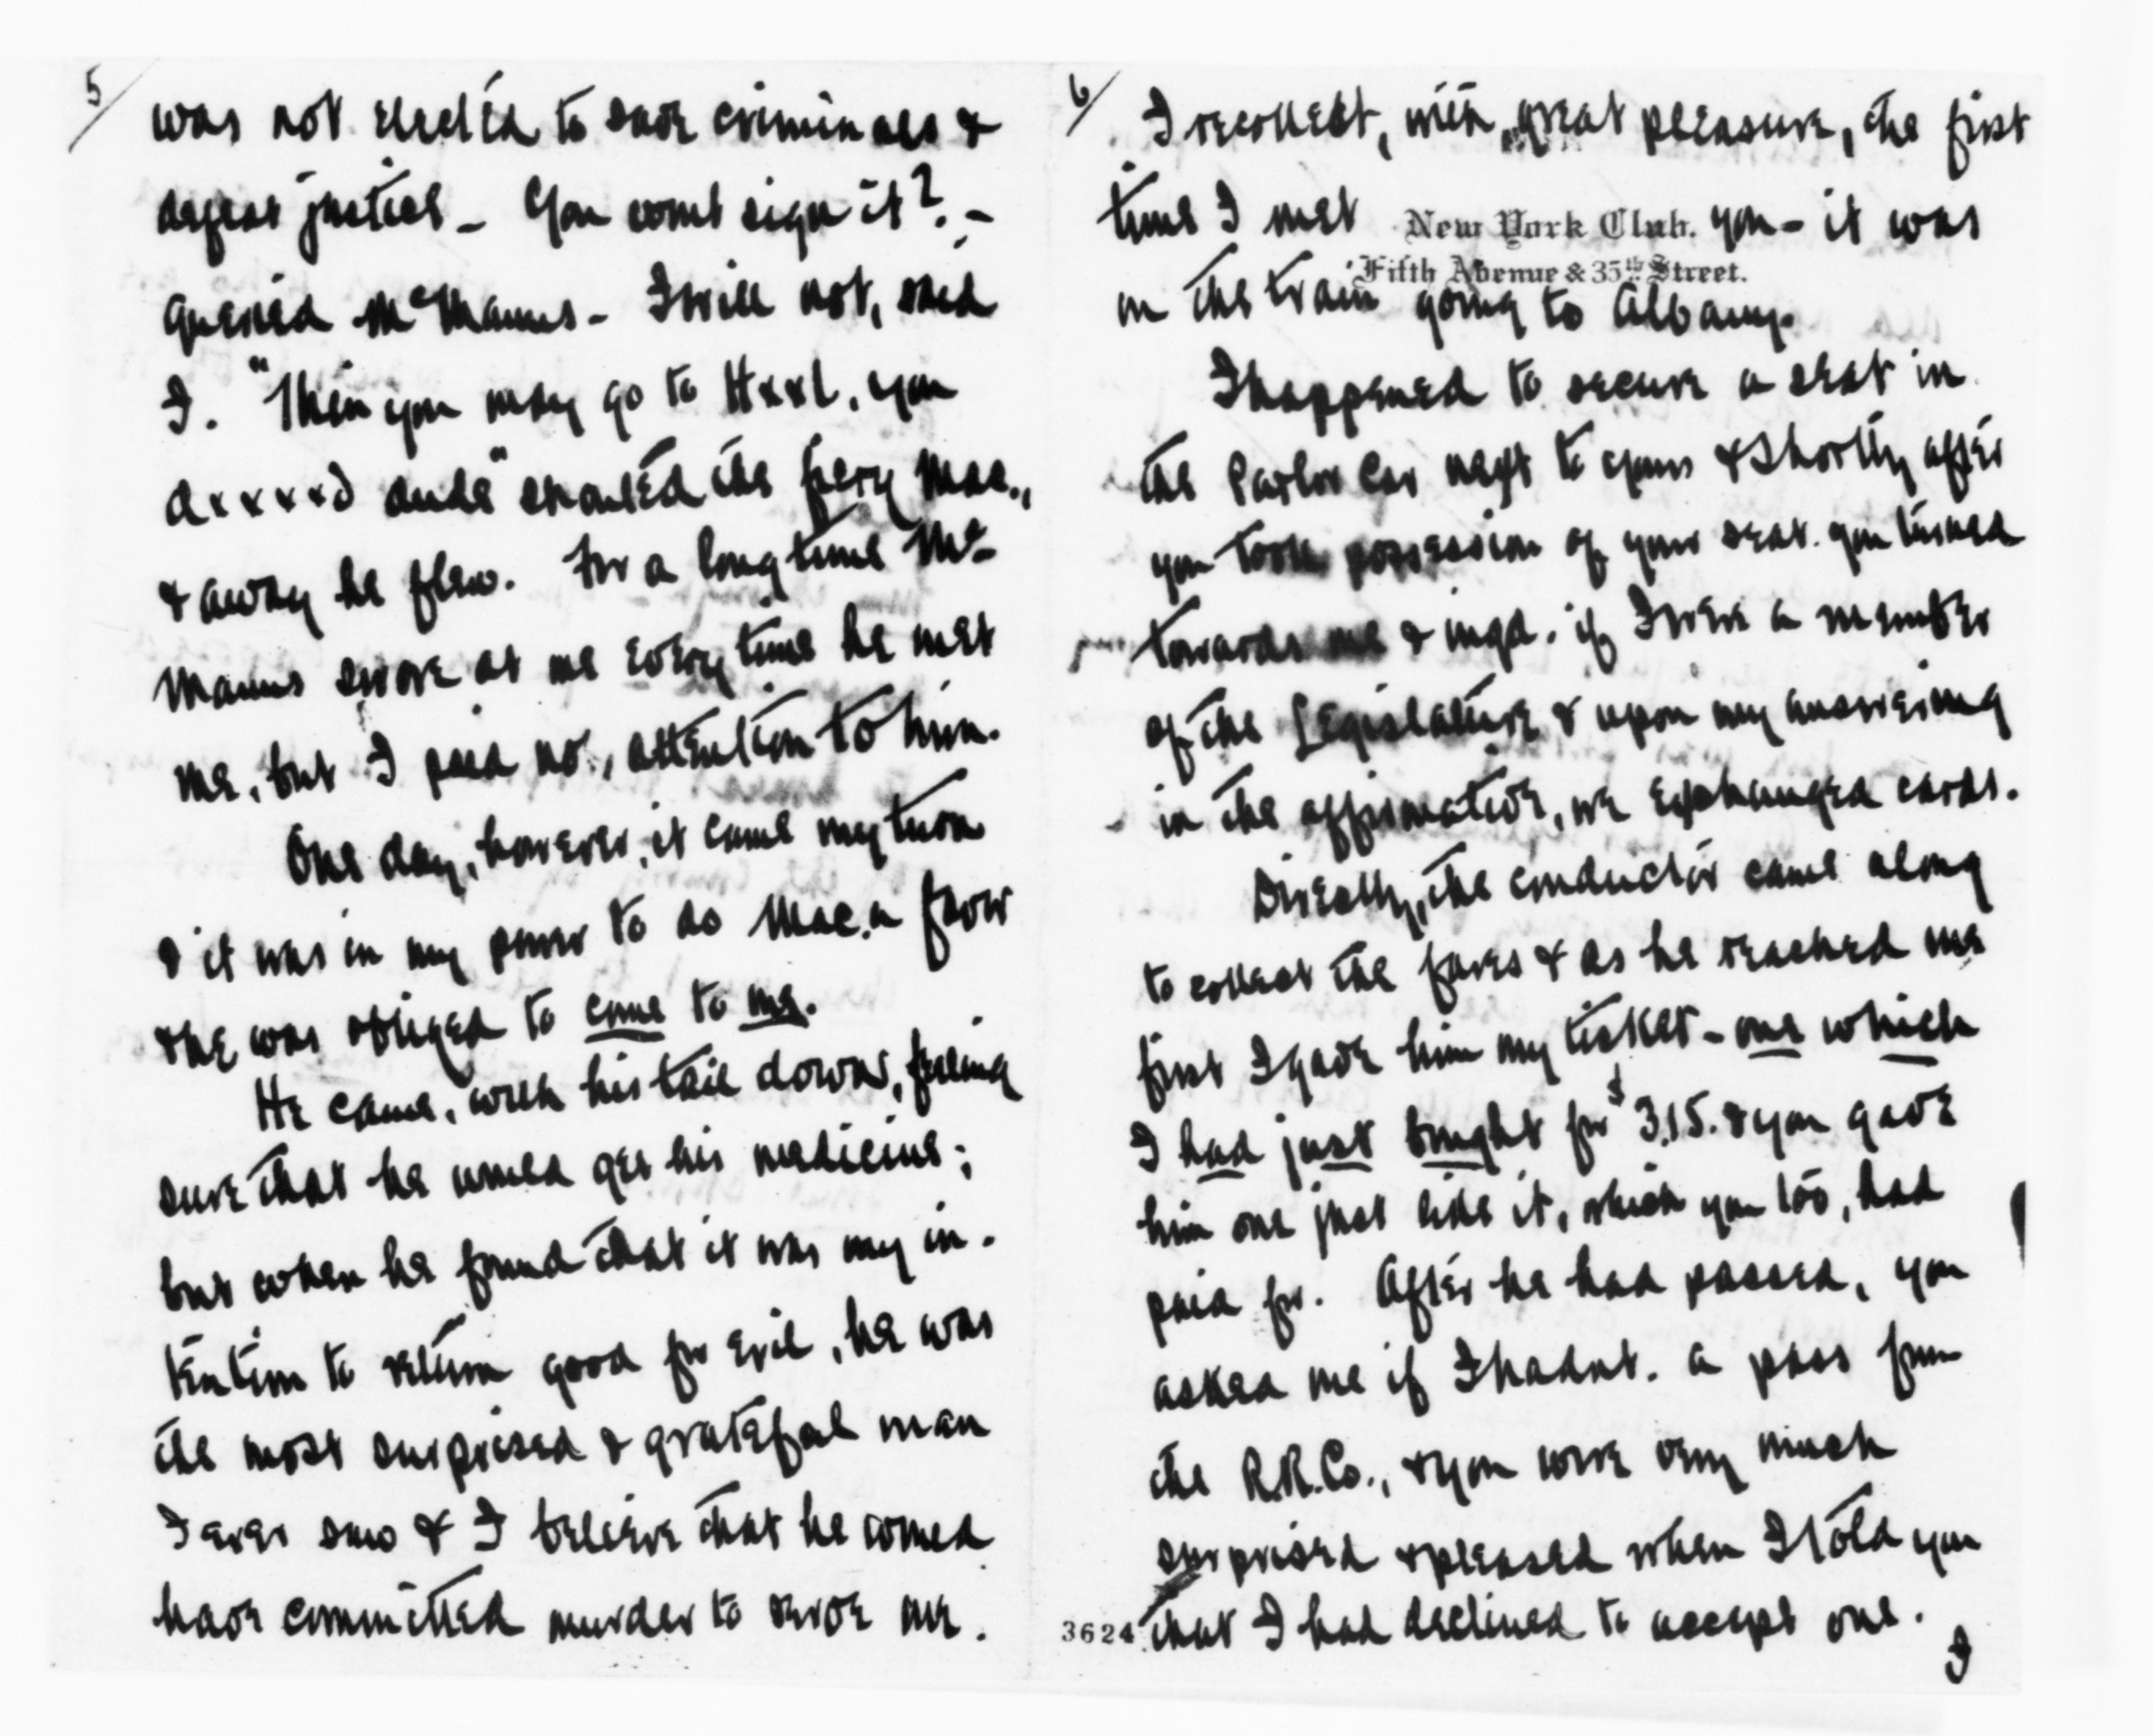 5/
was not elected to save criminals &
defeat justice – You wont sign it? –
queried McManus – I will not, said
I. "Then you may go to Hxxl, you
dxxxxd dude" shouted the fiery Mac.,
& away he flew. For a long time Mc-
Manus swore at me every time he met
me, but I paid no, attention to him.
One day, however, it came my turn
& it was in my power to do Mac. a favor
& he was obliged to come to me.
He came, with his tail down, feeling
sure that he would get his medicine;
but when he found that it was my in-
tention to return good for evil, he was
the most surprised & grateful man
I ever saw & I believe that he would
have committed murder to serve me.
6/
I recollect, with great pleasure, the first
time I met New York Club. you – it was
Fifth Avenue & 35th Street.
on the train going to Albany.
I happened to secure a seat in
the Parlor Car next to yours & shortly after
you took possession of your seat. you turned
towards me & inqd. if I were a member
of the Legislature & upon my answering
in the affirmative, we exchanged cards.
Directly, the conductor came along
to collect the fares & as he reached me
first I gave him my ticket – one which
I had just bought for $3.15. & you gave
him one just like it, which you too, had
paid for. After he had passed, you
asked me if I hadnt. a pass from
the R.R.Co., & you were very much
surprised & pleased when I told you
3624 that I had declined to accept one.
I